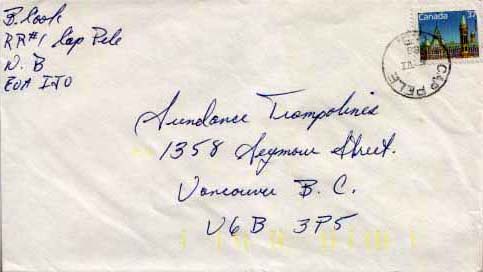 B. Cook
RR#1 Cap Pele
N. B
E0A IJ0
Canada 37
CAP PELE
Sundance Trampolines
1358 Seymour Street.
Vancouver B. C.
V6B 3P5